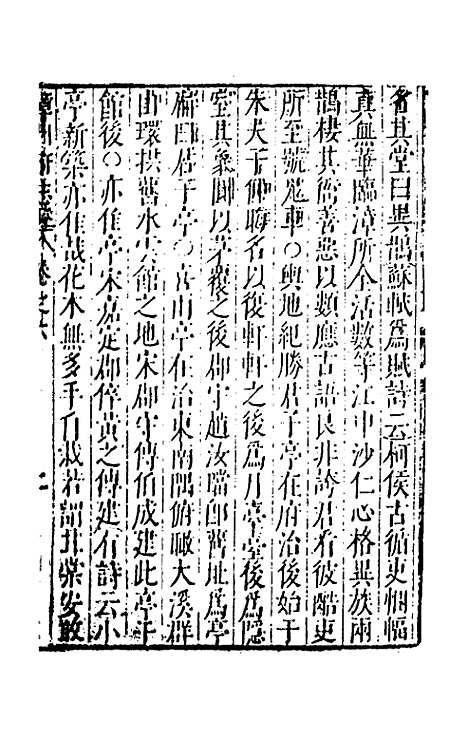 名其堂曰異鵲蘇軾爲賦詩云柯侯古循吏悃愊
真無華臨漳所全活數等江中沙仁心格異族兩
鵲棲其衙善惡以類應古語良非誇君看彼酷吏
所至號鬼車○輿地紀勝君子亭在府治後始于
朱文子仰晦名以後軒軒之後爲月臺臺後爲隱
室其象圓以茅覆之後郡守趙汝讜卽舊址爲亭
榭曰君子亭○喜雨亭在治東南隅俯瞰大溪群
山環拱舊水雲館之地宋郡守傅伯成建此亭于
館後○亦佳亭宋嘉定郡倅黃之傳建有詩云小
亭新築亦佳哉花木無多手自栽若謂北榮安敢
漳州府志 卷之六